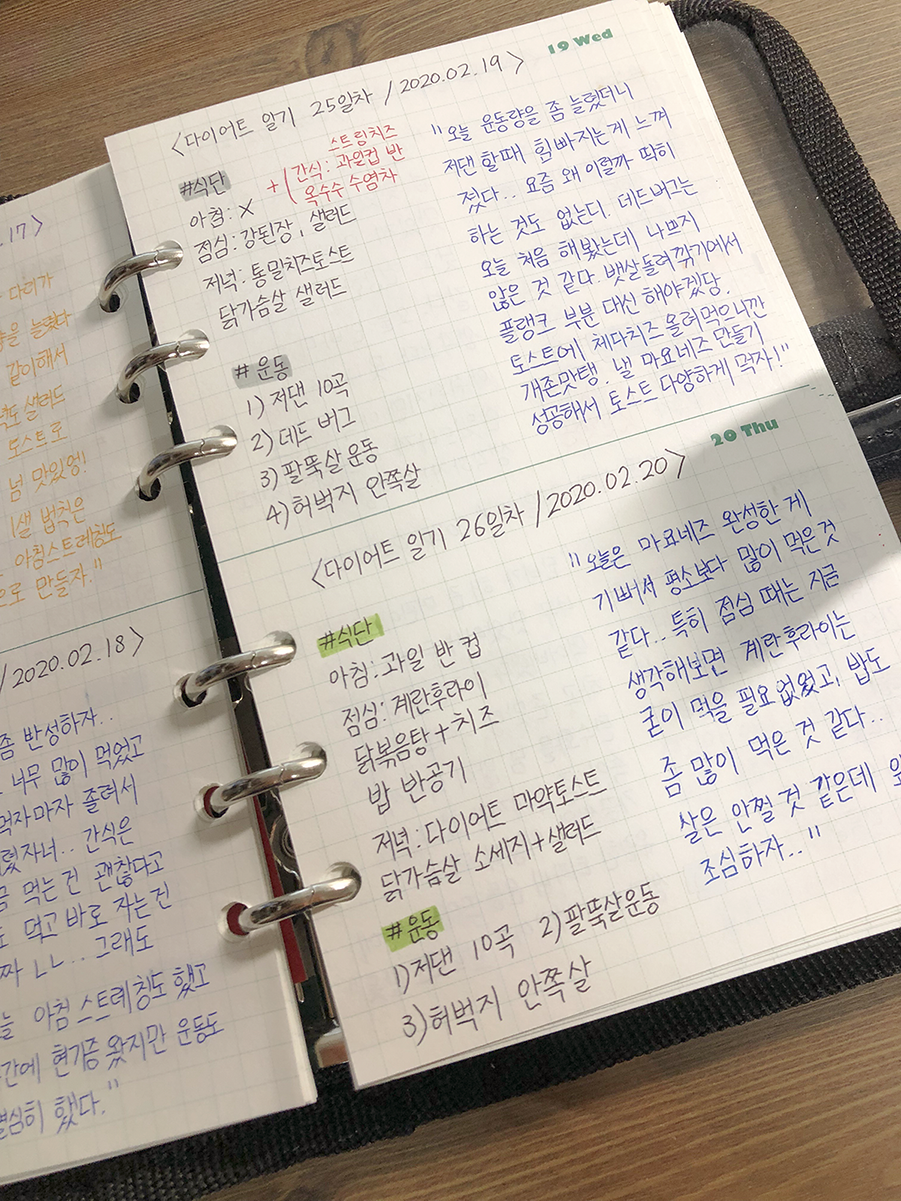 .17>
다리가
을 늘렸다
같이해서
샐러드
토스트로
넘 맛있엉!
법칙은
아침스트레칭도
으로 만들자."
/2020.02.18>
좀 반성하자..
너무 많이 먹었고
먹자마자 졸려서
간식은
먹는건 괜찮다고
먹고 바로 자는건
ㄴㄴ... 그래도
아침 스트레칭도 했고
현기증 왔지만 운동도
했다."
19 Wed
<다이어트 일기 25일차 /2020.02.19>
#식단
+( 간식: 과일컵 반
스트링치즈
옥수수 수염차
아침: X
점심: 강된장, 샐러드
저녁: 통밀치즈토스트
닭가슴살 샐러드
#운동
1) 저댄 10곡
2) 데드 버그
3) 팔뚝살 운동
4) 허벅지 안쪽살
"오늘 운동량을 좀 늘렸더니
저댄 할때 힘 빠지는게 느껴
졌다... 요즘 왜 이럴까 딱히
하는 것도 없는디. 데드버그는
오늘 처음 해봤는데 나쁘지
않은 것 같다. 뱃살돌려깎기에서
플랭크 부분 대신 해야겠당.
토스트에 체다치즈 올려먹으니까
개존맛탱. 낼 마요네즈 만들기
성공해서 토스트 다양하게 먹자!"
20 Thu
<다이어트 일기 26일차 /2020.02.20>
#식단
아침: 과일 반 컵
점심: 계란후라이
닭볶음탕+치즈
밥 반공기
저녁: 다이어트 마약토스트
닭가슴살 소세지+샐러드
#운동
1)저댄 10곡 2)팔뚝살운동
3)허벅지 안쪽살
"오늘은 마요네즈 완성한 게
기뻐서 평소보다 많이 먹은것
같다... 특히 점심 때는 지금
생각해보면 계란후라이는
굳이 먹을 필요 없었고, 밥도
좀 많이 먹은 것 같다...
살은 안찔 것 같은데
조심하자.."